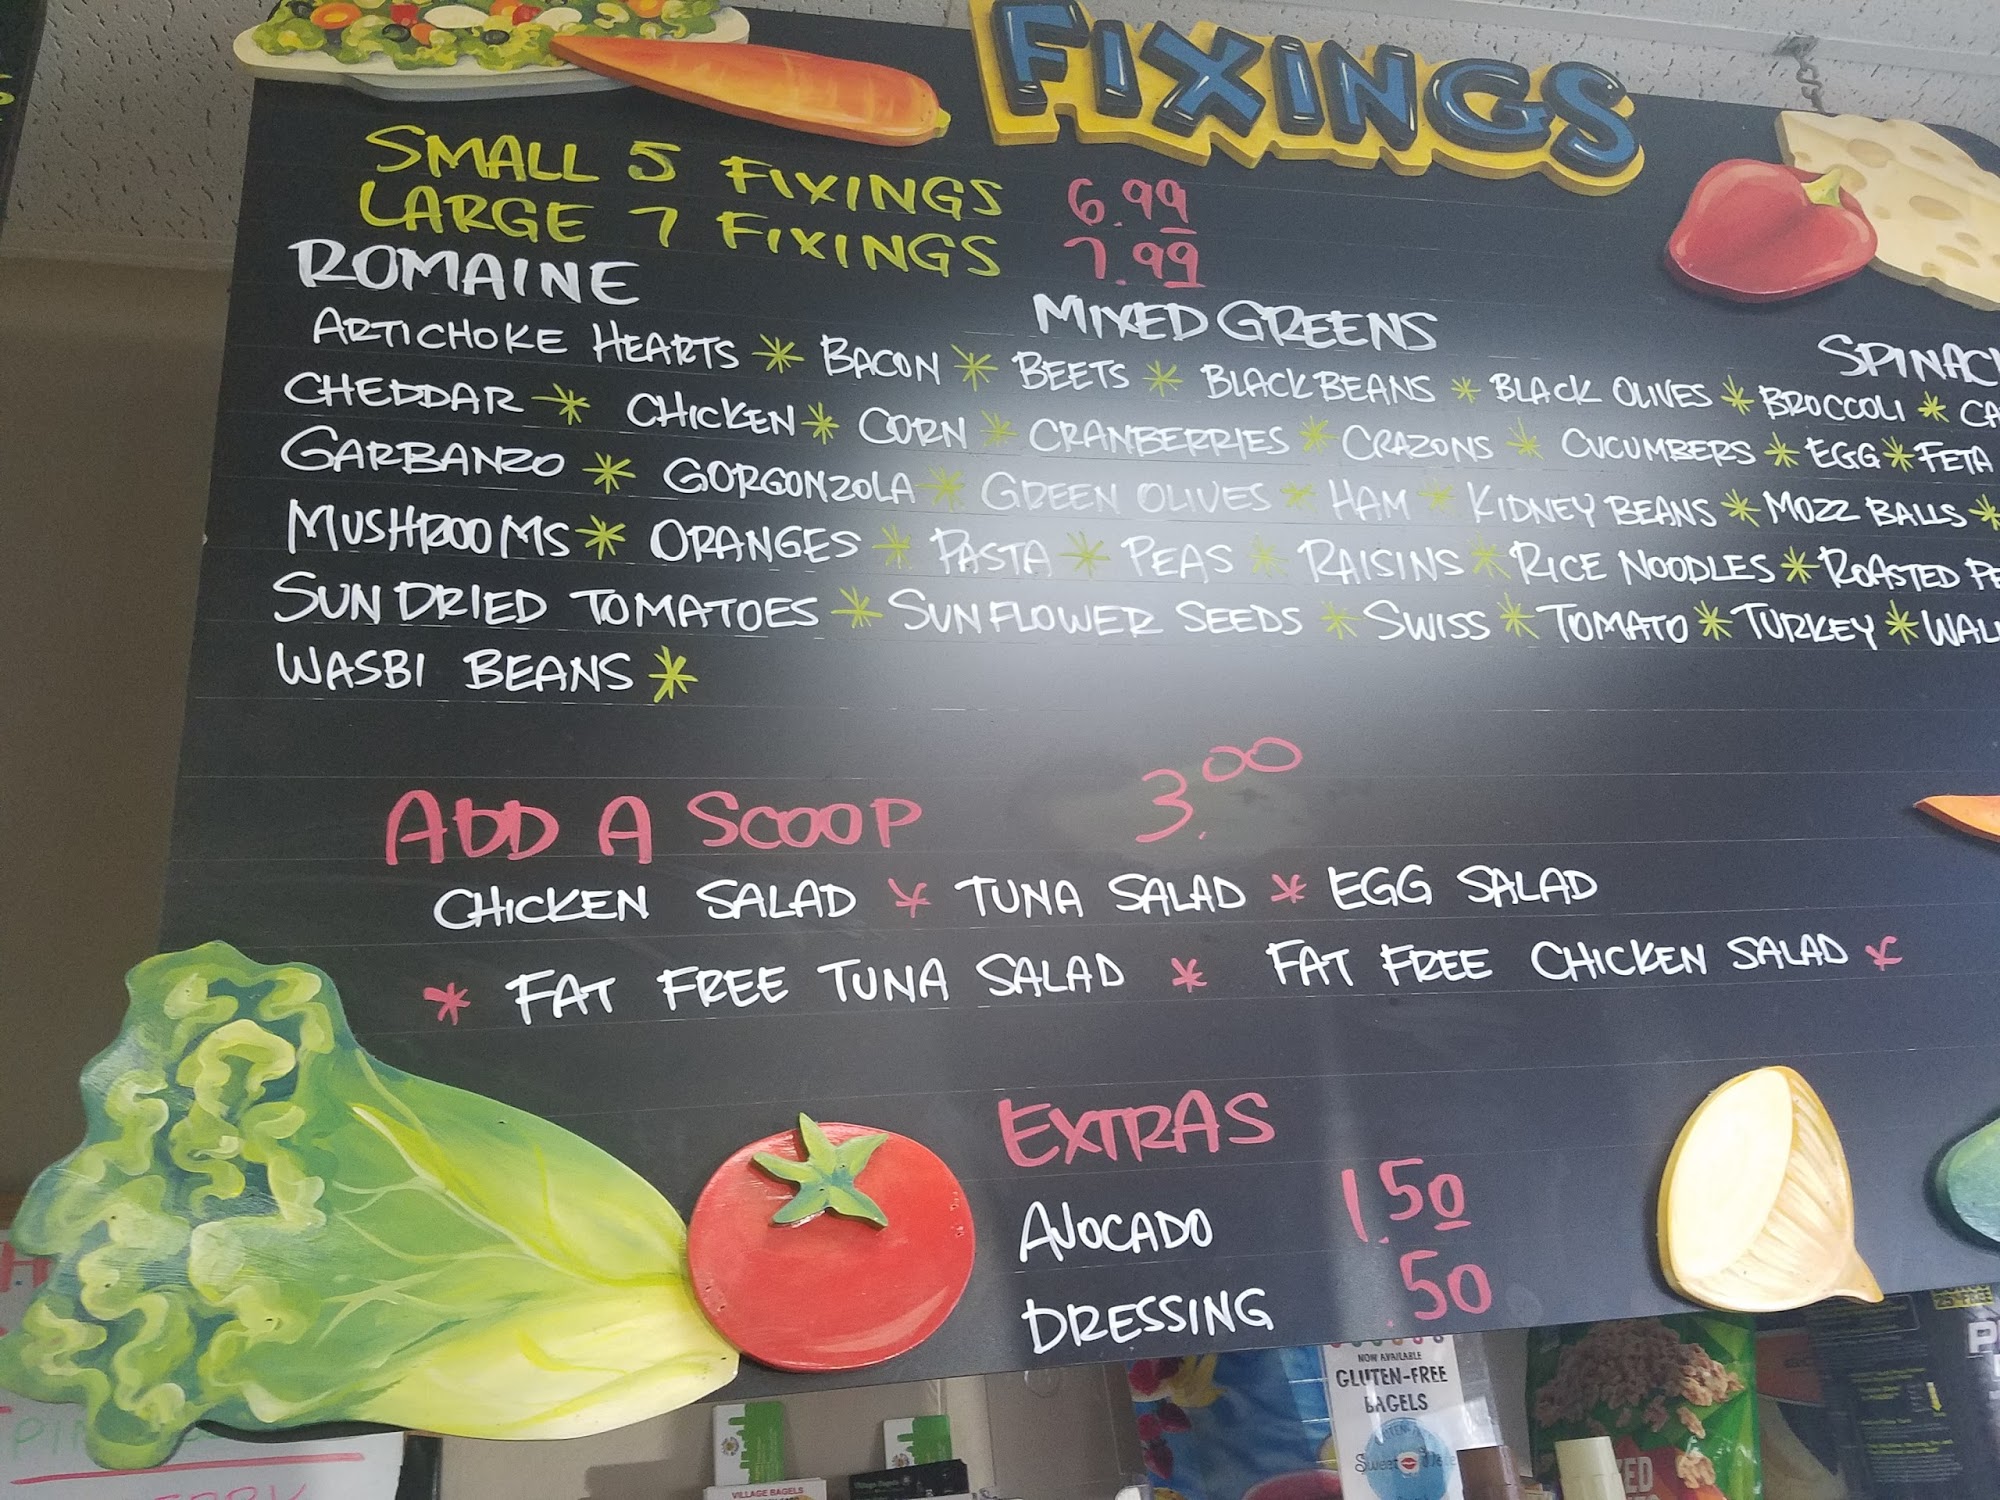 FIXINGS
SMALL 5 FIXINGS 6.99
LARGE 7 FIXINGS 7.99
ROMAINE MIXED GREENS SPINAC
ARTICHOKE HEARTS * BACON * BEETS * BLACK BEANS * BLACK OLIVES * BROCCOLI * CA
CHEDDAR * CHICKEN * CORN * CRANBERRIES * CRAZONS * CUCUMBERS * EGG * FETA
GARBANZO * GORGONZOLA * GREEN OLIVES * HAM * KIDNEY BEANS * MOZZ BALLS *
MUSHROOMS * ORANGES * PASTA * PEAS * RAISINS * RICE NOODLES * ROASTED PE
SUN DRIED TOMATOES * SUNFLOWER SEEDS * SWISS * TOMATO * TURKEY * WAL
WASBI BEANS *
ADD A SCOOP 3.00
CHICKEN SALAD * TUNA SALAD * EGG SALAD
* FAT FREE TUNA SALAD * FAT FREE CHICKEN SALAD *
EXTRAS
AVOCADO 1.50
DRESSING .50
NOW AVAILABLE
GLUTEN-FREE
BAGELS
Sweet
VILLAGE BAGELS